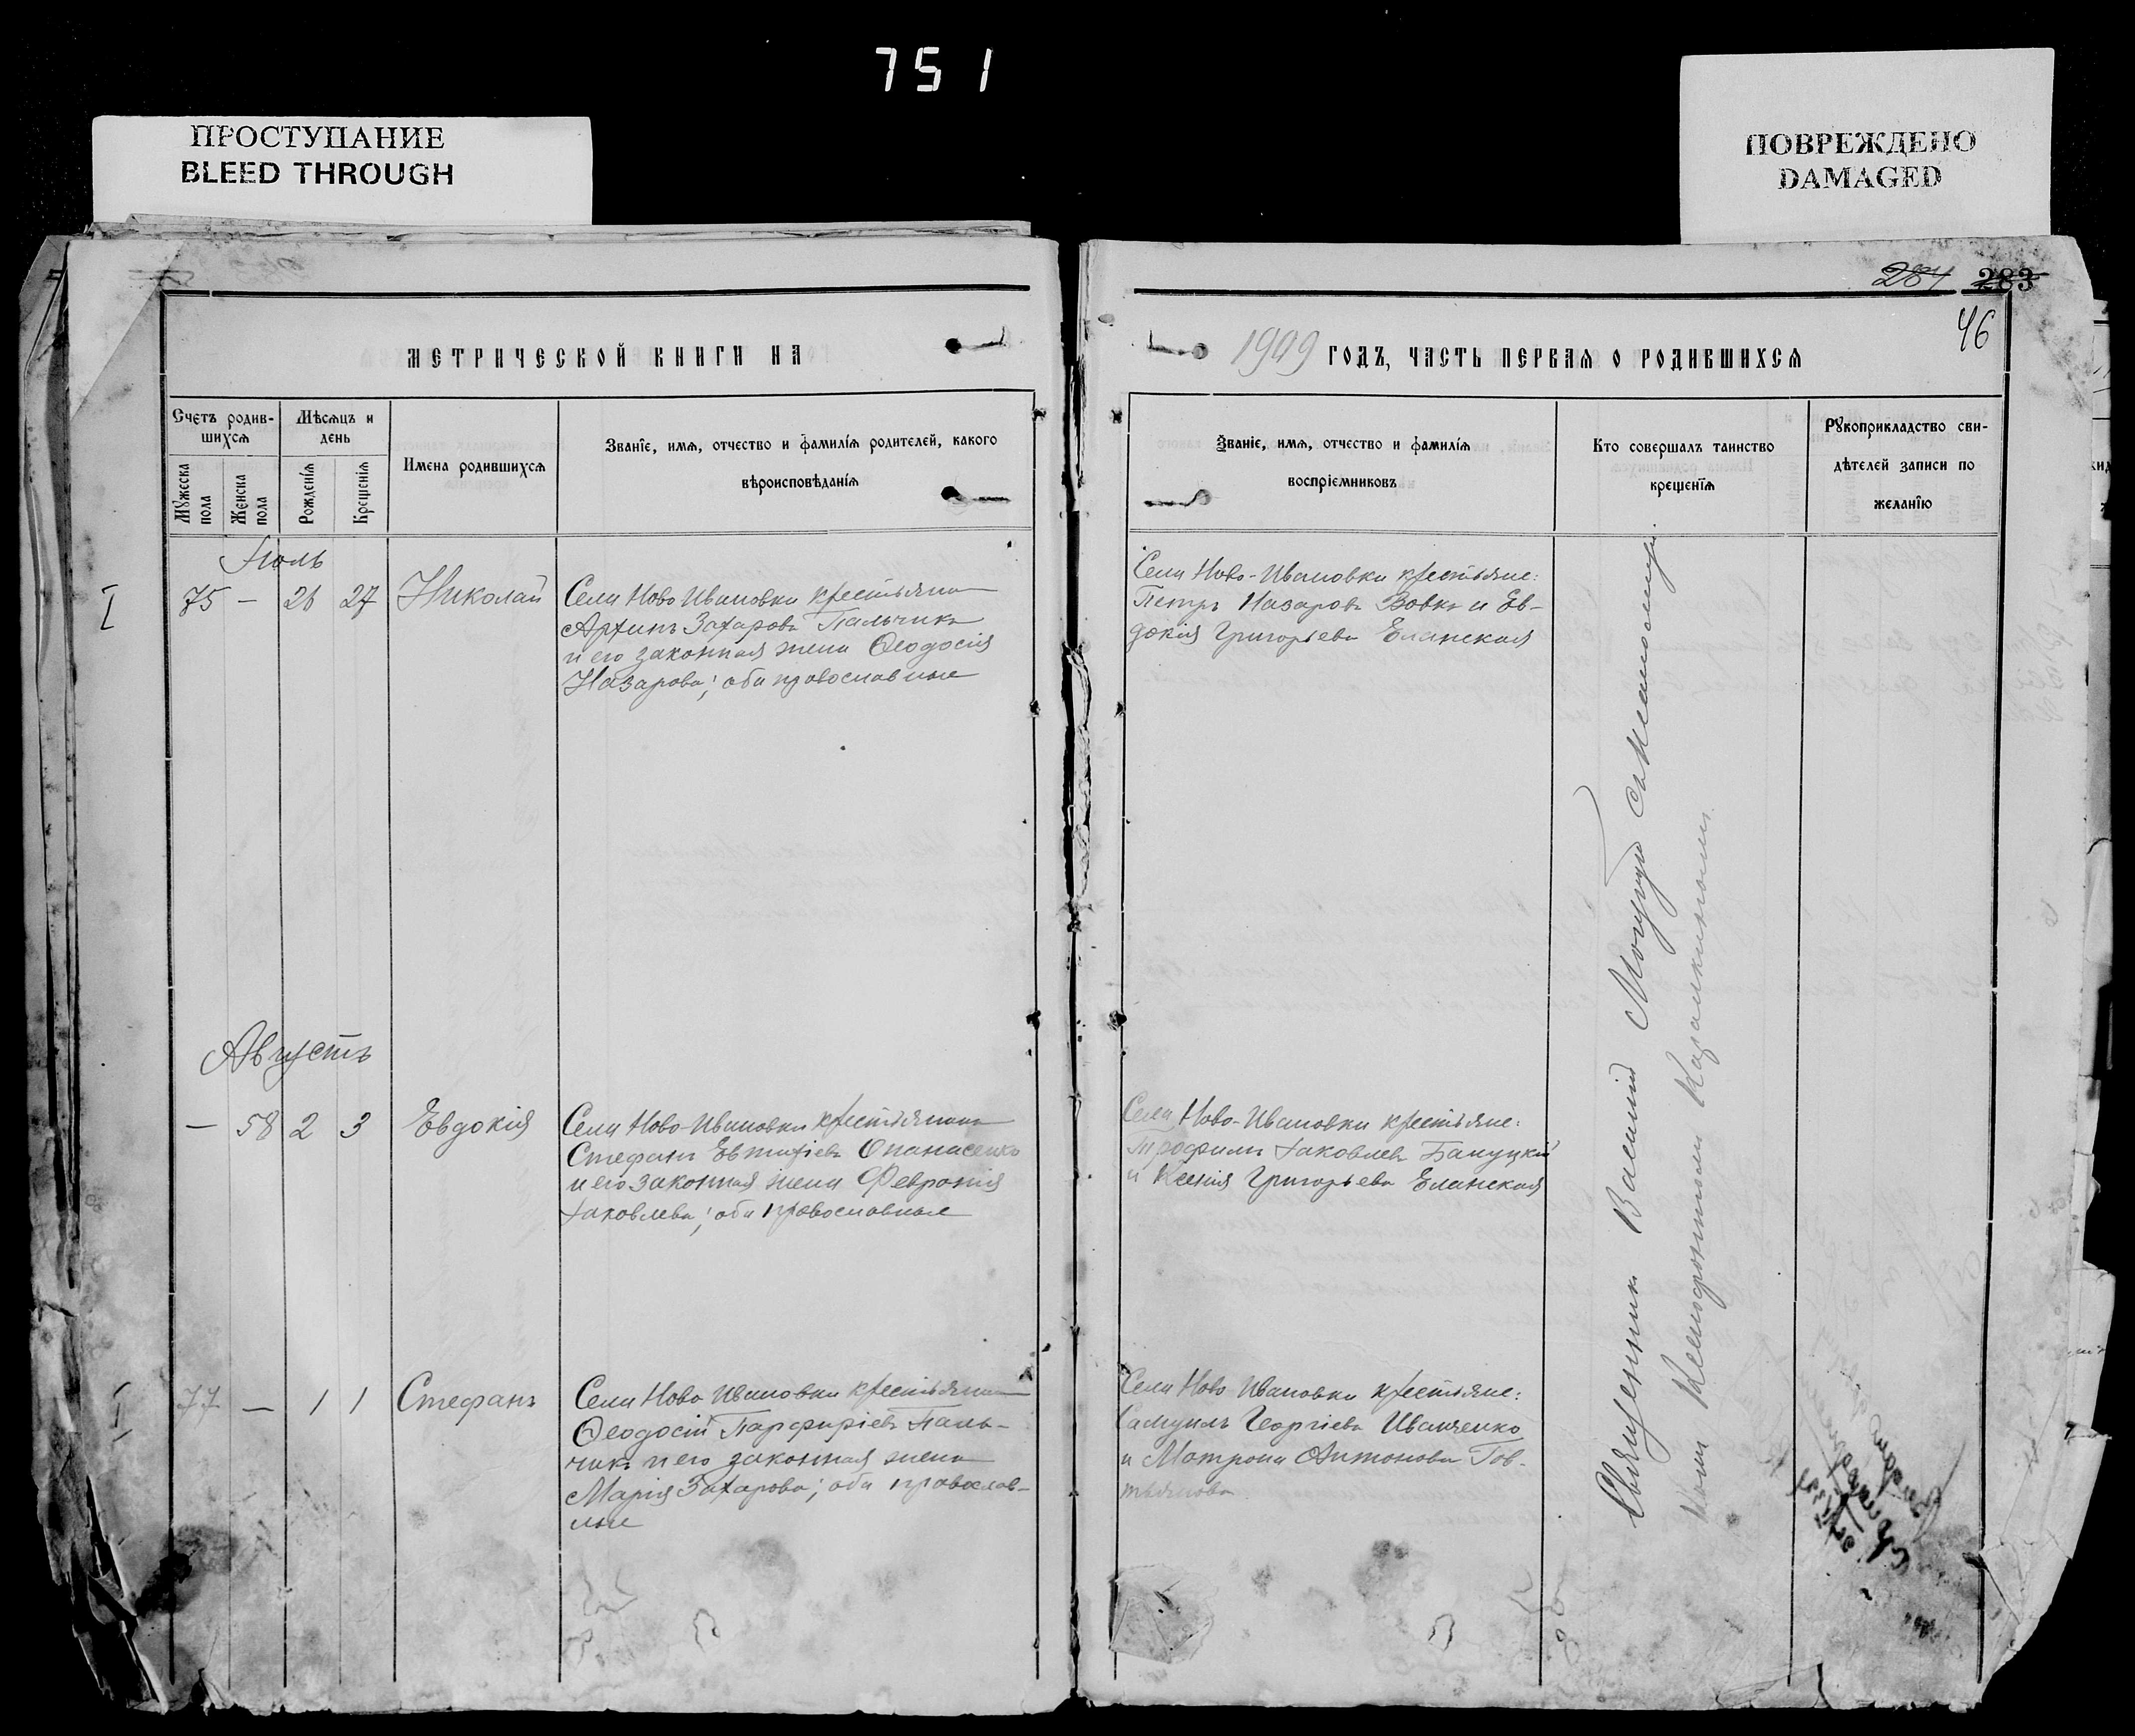 751
ПРОСТУПАНИЕ
BLEED THROUGH
ПОВРЕЖДЕНО
DAMAGED
284 283
46
МЕТРИЧЕСКОЙ КНИГИ НА
Счетъ родив-
шихся
Мѣсяцъ и
день
Мужеска
пола
Женска
пола
Рожденія
Крещенія
Имена родившихся
Званіе, имя, отчество и фамилія родителей, какого
вѣроисповѣданія
Іюль
I 75 — 26 27 Николай
Села Ново Ивановки крестьянинъ
Архипъ Захаровъ Пальчикъ
и его законная жена Ѳеодосія
Назарова; оба православные
Августъ
— 58 2 3 Евдокія
Села Ново-Ивановки крестьянинъ
Стефанъ Евтихіевъ Опанасенко
и его законная жена Февронія
Іаковлева; оба православные
I 77 — 1 1 Стефанъ
Села Ново Ивановки крестьянинъ
Ѳеодосій Парфиріевъ Паль-
чикъ и его законная жена
Марія Захарова; оба православ-
ные
1909 ГОДЪ, ЧАСТЬ ПЕРВАЯ О РОДИВШИХСЯ
Званіе, имя, отчество и фамилія
воспріемниковъ
Кто совершалъ таинство
крещенія
Рукоприкладство сви-
дѣтелей записи по
желанію
Села Ново-Ивановки крестьяне:
Петръ Назаровъ Вовкъ и Ев-
докія Григорьева Еланская
Села Ново-Ивановки крестьяне:
Трофимъ Іаковлевъ Бануцкій
и Ксенія Григорьева Еланская
Села Ново Ивановки крестьяне:
Самуилъ Георгіевъ Иванченко
и Матрона Антонова Гов-
тьянова
Священник Василий